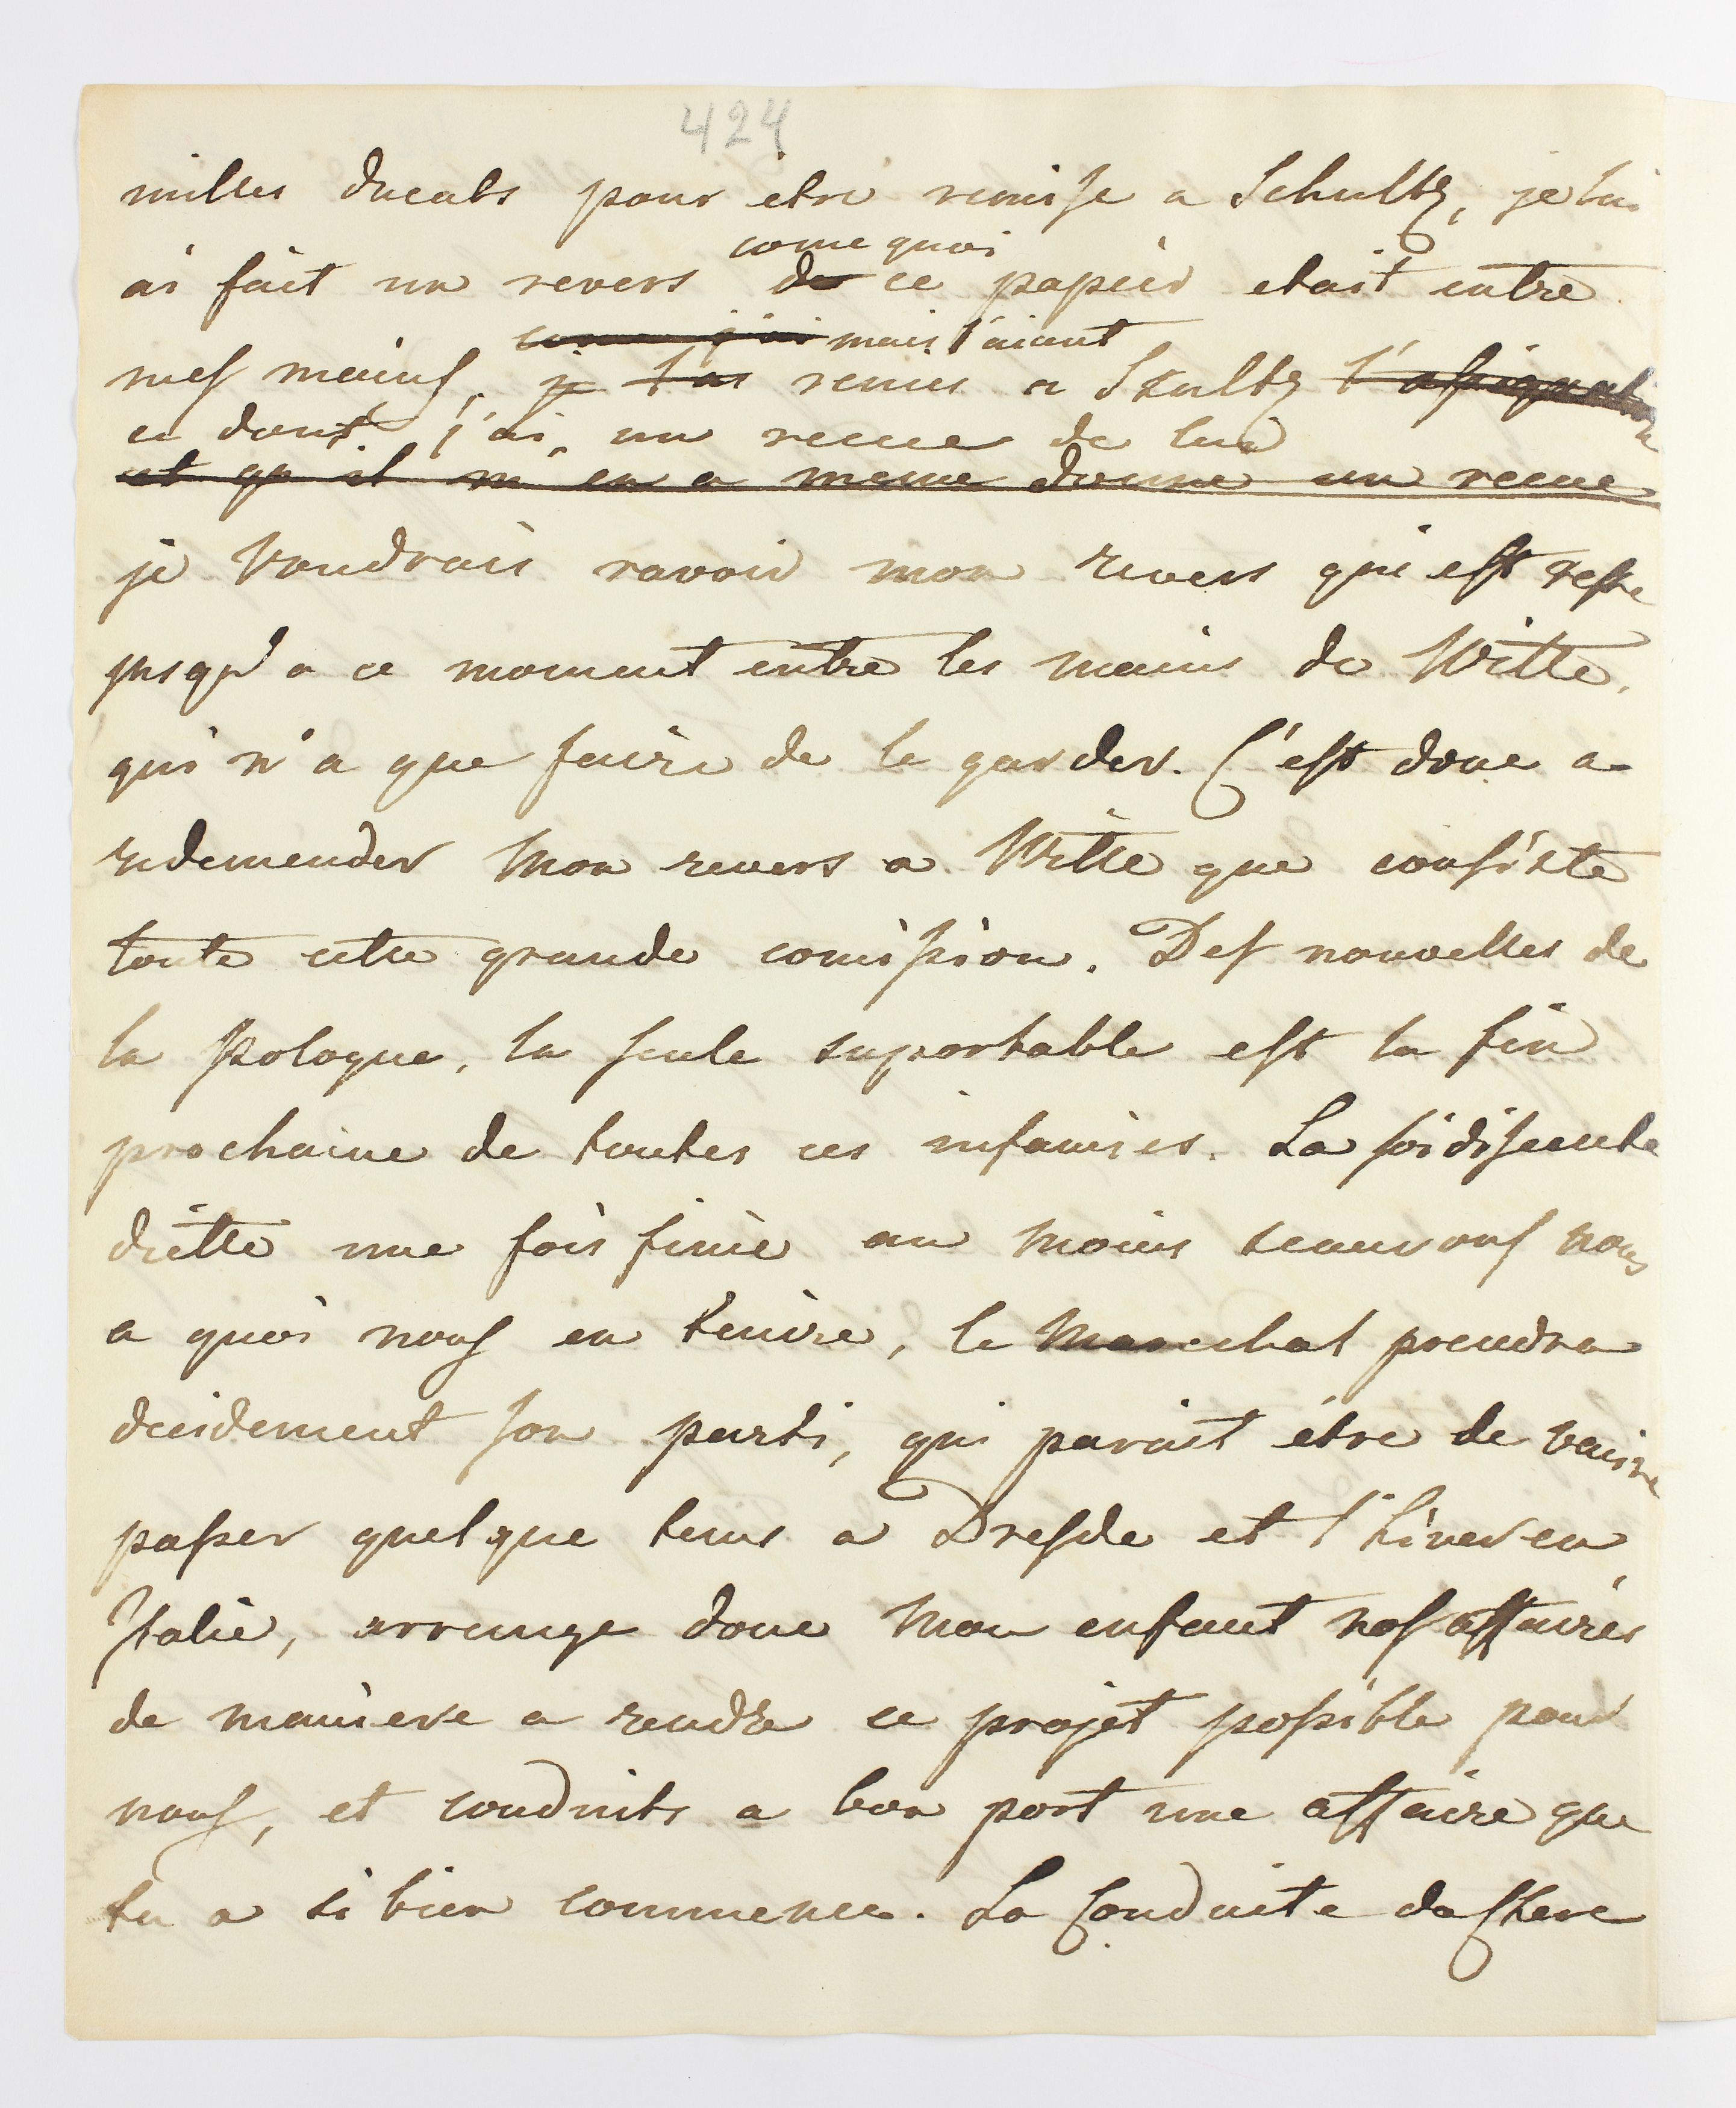 424
milles ducats pour etre remise a Schultz, je lui
come quoi
ai fait un revers de ce papier etait entre
come j'ai mais l'aiant
mes mains, je l'ai remis a Skultz l'assignation
en dont j'ai, un recue de lui
et qu il m'en a meme donne un recue
je voudrais ravoir mon revers qui est reste
jusqu'a ce moment entre les mains de Witte,
qui n'a que faire de le garder. C'est donc a
redemender mon revers a Witte que consiste
toute cette grande comission. Des nouvelles de
la pologne, la seule suportable est la fin
prochaine de toutes ces infamies. La soidisente
diette une fois finie au moins scaurons nous
a quoi nous en tenire, le Marechal prendra
decidement son parti, qui parait être de venire
passer quelque tems a Dresde et l'hiver en
Italie, arrenge donc mon enfant nos affaires
de maniere a rendre ce projet possible pour
nous, et conduits a bon port une affaire que
tu a si bien commence. La Conduite de